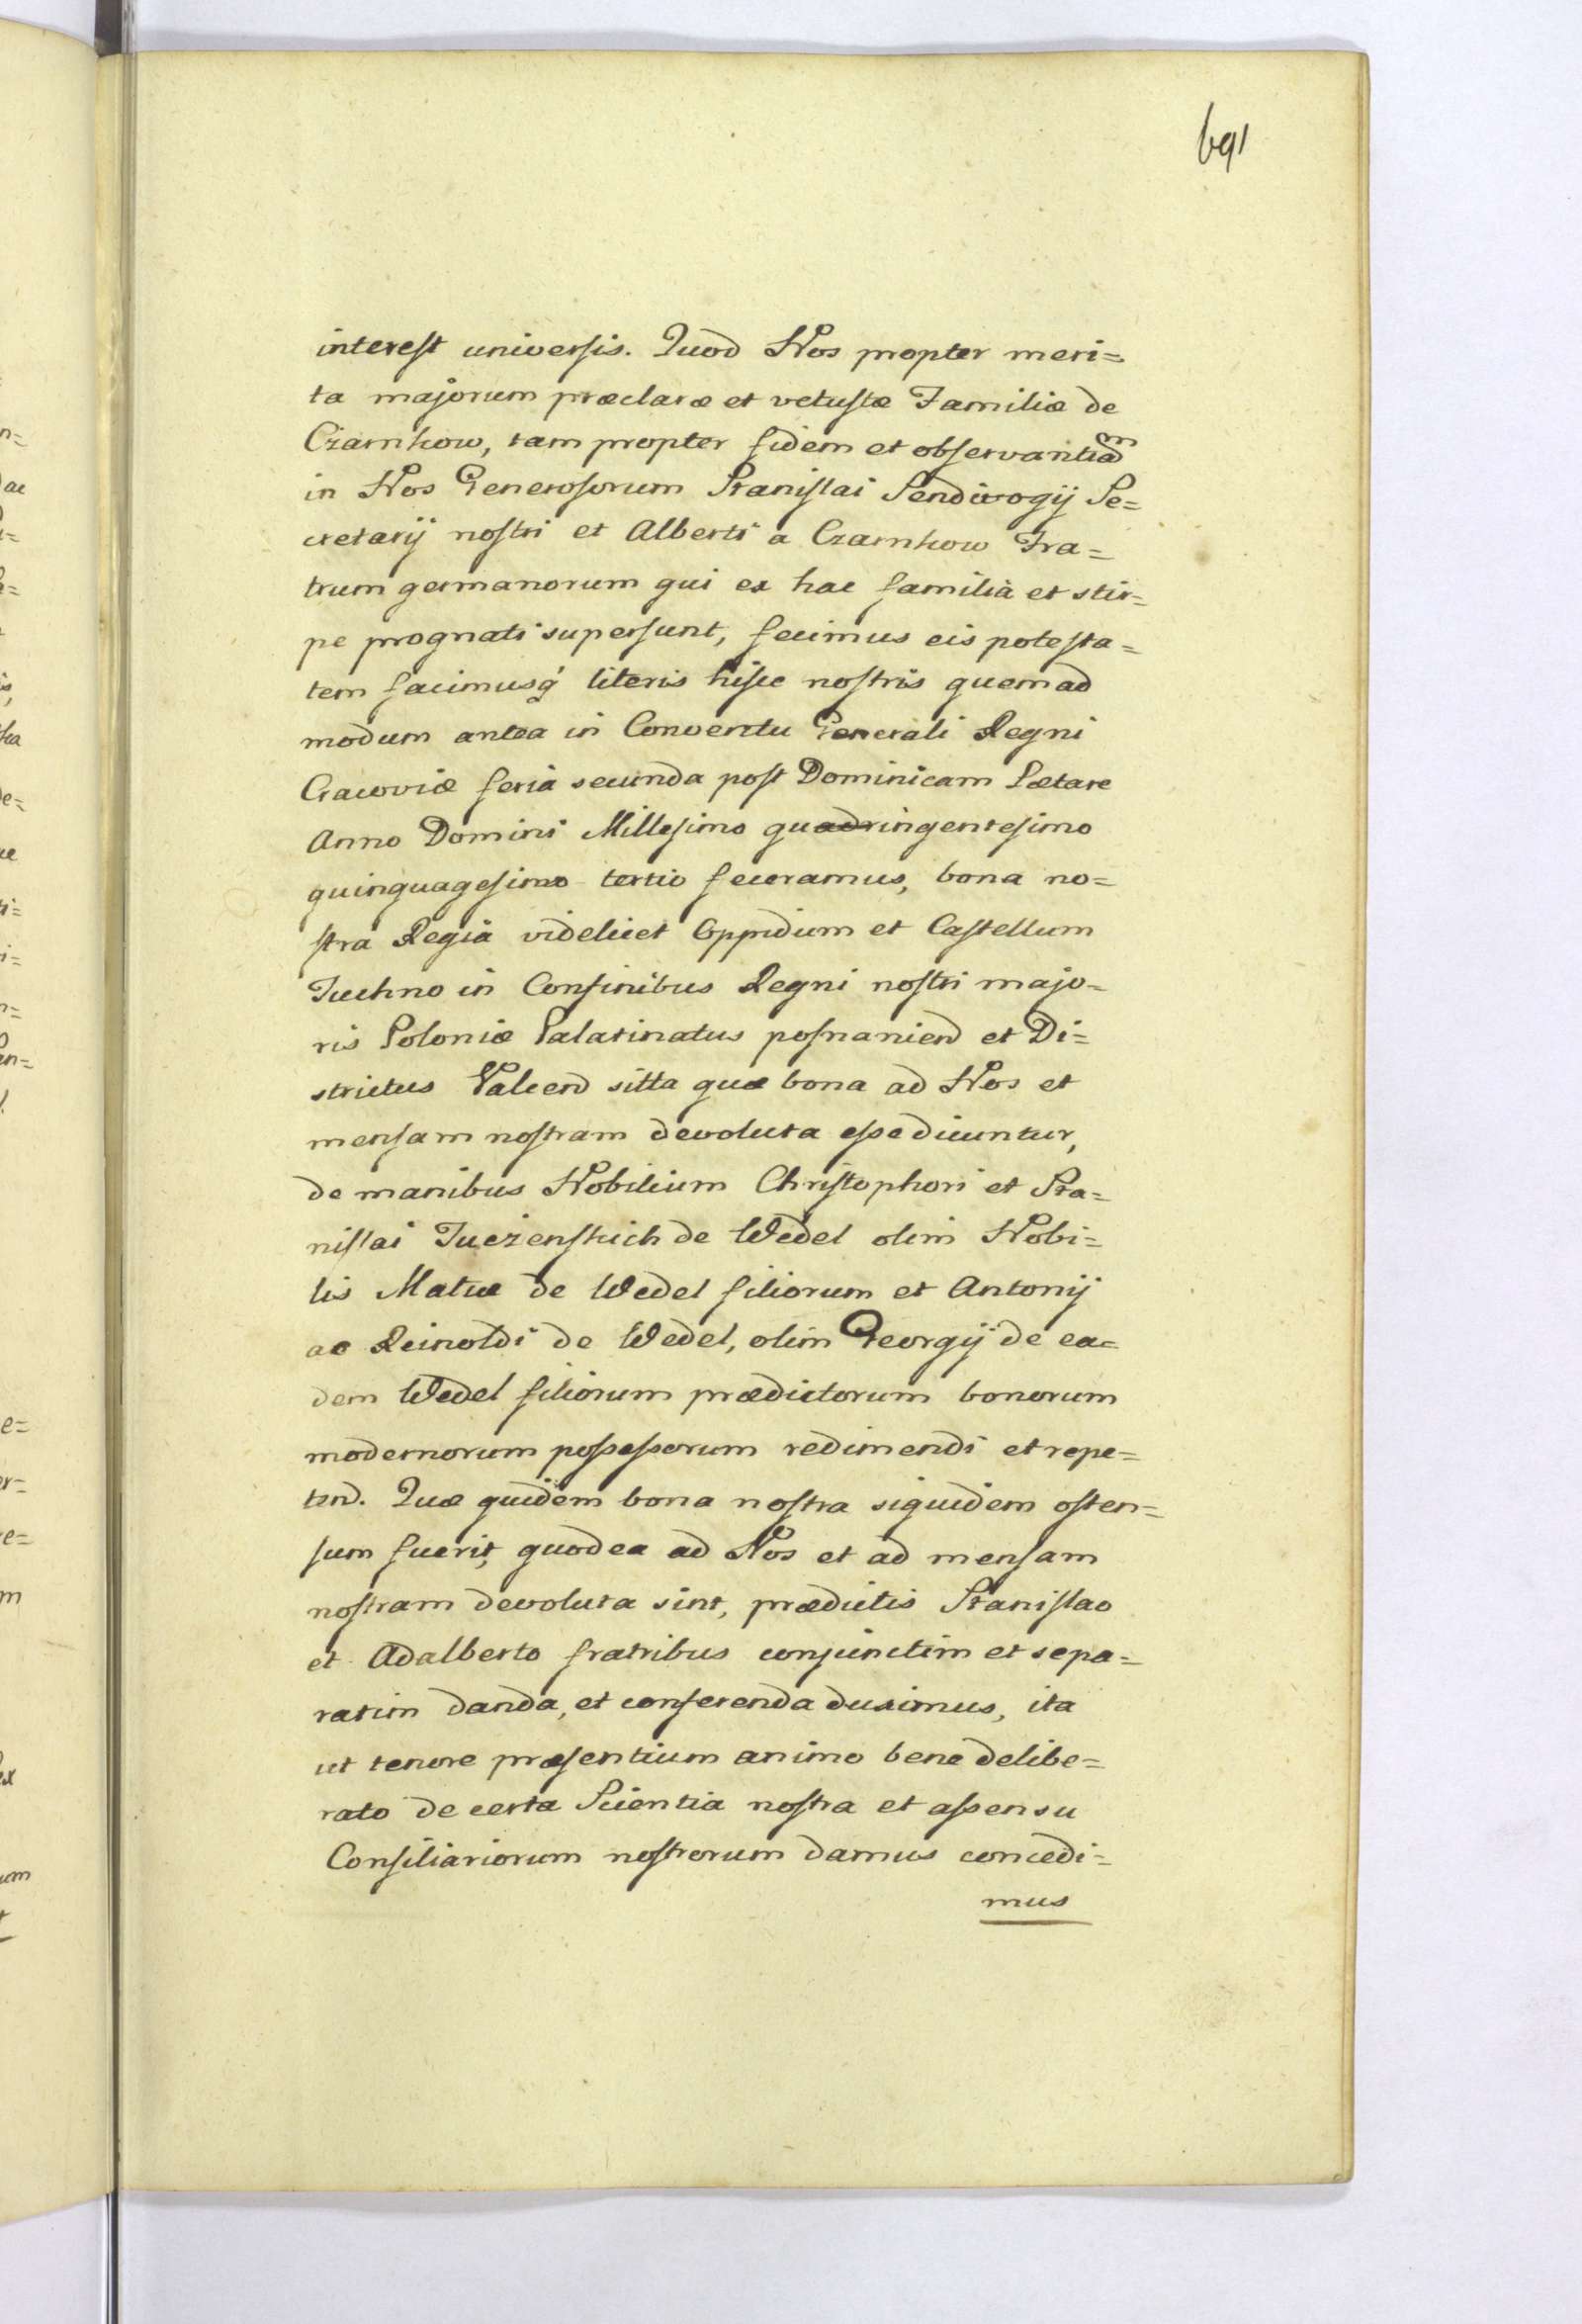 691
interest universis. Quod Nos propter meri=
ta majorum præclaræ et vetustæ Familiæ de
Czarnkow, tam propter fidem et observantiam
in Nos Generosorum Stanislai Sendivogij Se=
cretarij nostri et Alberti a Czarnkow Fra=
trum germanorum qui ex hac familia et stir=
pe prognati supersunt, fecimus eis potesta=
tem facimusq́ literis hisce nostris quemad
modum antea in Conventu Generali Regni
Cracoviæ feria secunda post Dominicam Lætare
Anno Domini Millesimo quadringentesimo
quinquagesimo tertio feceramus, bona no=
stra Regia videlicet Oppidum et Castellum
Tuchno in Confinibus Regni nostri majo=
ris Poloniæ Palatinatus posnaniend et Di=
strictus Valcend sitta quæ bona ad Nos et
mensam nostram devoluta esse dicuntur,
de manibus Nobilium Christophori et Sta=
nislai Tuczenskich de Wedel olim Nobi=
lis Matiæ de Wedel filiorum et Antonij
ac Reinoldi de Wedel, olim Georgij de ea=
dem Wedel filiorum prædictorum bonorum
modernorum possessorum redimendi et repe=
tend. Quæ quidem bona nostra siquidem osten=
sum fuerit, quod ea ad Nos et ad mensam
nostram devoluta sint, prædictis Stanislao
et Adalberto fratribus conjunctim et sepa=
ratim danda, et conferenda duximus, ita
ut tenore præsentium animo bene delibe=
rato de certa Scientia nostra et assensu
Consiliariorum nostrorum damus concedi=
mus